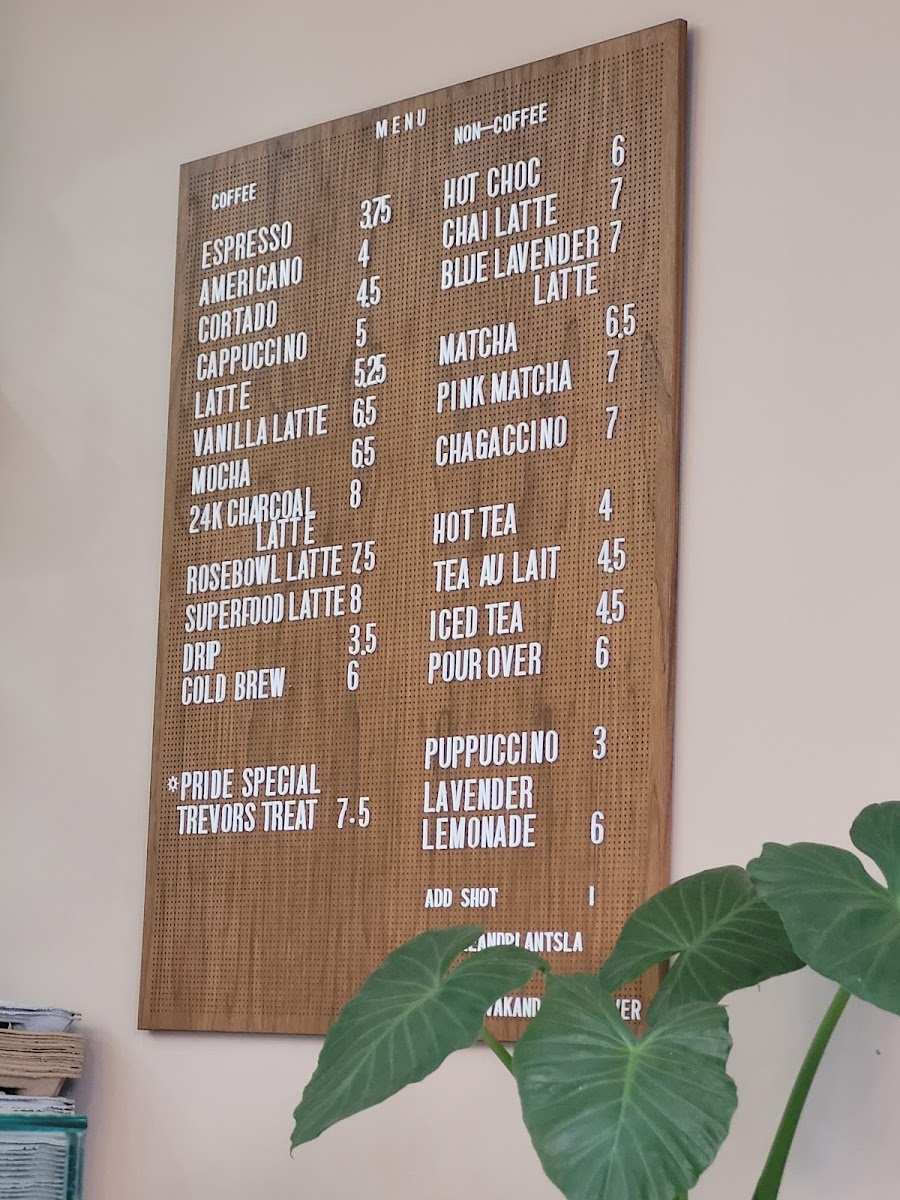 MENU
COFFEE
ESPRESSO 3.75
AMERICANO 4
CORTADO 4.5
CAPPUCCINO 5
LATTE 5.25
VANILLA LATTE 6.5
MOCHA 6.5
24K CHARCOAL 8
LATTE
ROSEBOWL LATTE 7.5
SUPERFOOD LATTE 8
DRIP 3.5
COLD BREW 6
*PRIDE SPECIAL
TREVORS TREAT 7.5
NON-COFFEE
HOT CHOC 6
CHAI LATTE 7
BLUE LAVENDER 7
LATTE
MATCHA 6.5
PINK MATCHA 7
CHAGACCINO 7
HOT TEA 4
TEA AU LAIT 4.5
ICED TEA 4.5
POUR OVER 6
PUPPUCCINO 3
LAVENDER
LEMONADE 6
ADD SHOT 1